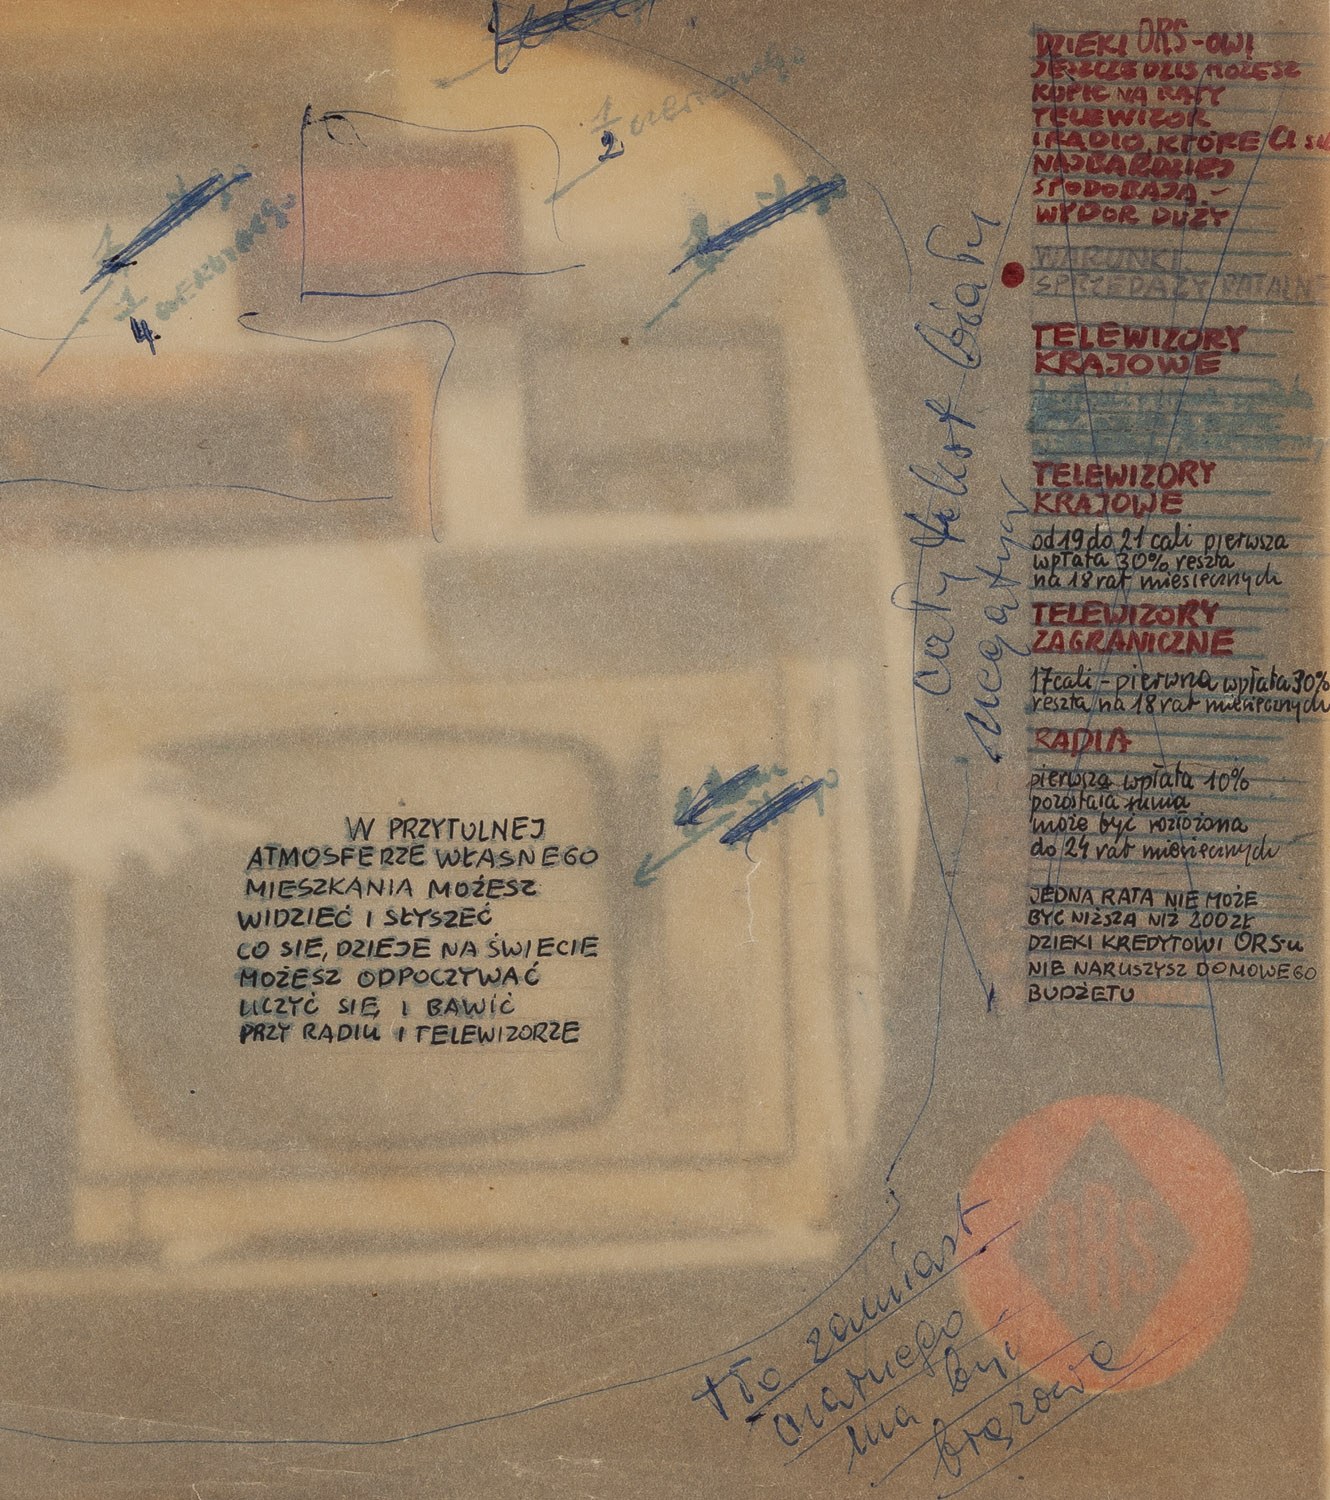 1
2 czerwonego
1
4. czerwonego
W PRZYTULNEJ
ATMOSFERZE WŁASNEGO
MIESZKANIA MOŻESZ
WIDZIEĆ I SŁYSZEĆ
CO SIĘ, DZIEJE NA ŚWIECIE
MOŻESZ ODPOCZYWAĆ
UCZYĆ SIĘ I BAWIĆ
PRZY RADIU I TELEWIZORZE
cały tekst biały
negatyw
DZIEKI ORS-OWI
JESZCZE DZIS MOŻESZ
KUPIC NA RATY
TELEWIZOR
I RADIO, KTÓRE CI
NAJBARDZIEJ
SPODOBAJA.-
WYBOR DUŻY
WARUNKI
SPRZEDAŻY RATALN
TELEWIZORY
KRAJOWE
TELEWIZORY
KRAJOWE
od 19 do 21 cali pierwsza
wpłata 30% reszta
na 18 rat miesięcznych
TELEWIZORY
ZAGRANICZNE
17 cali - pierwsza wpłata 30%
reszta na 18 rat miesięcznych
RADIA
pierwsza wpłata 10%
pozostała suma
może być rozłożona
do 24 rat miesięcznych
JEDNA RATA NIE MOŻE
BYĆ NIŻSZA NIŻ 200 ZŁ
DZIEKI KREDYTOWI ORS-u
NIE NARUSZYSZ DOMOWEGO
BUDŻETU
ORS
tło zamiast
czarnego
ma być
brązowe